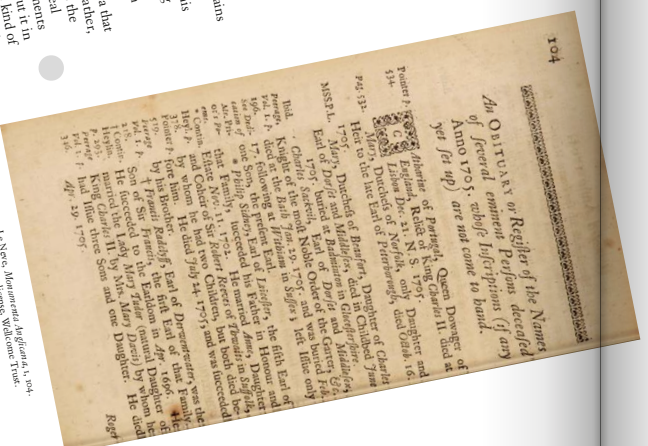 104
An OBITUARY or Register of the Names
of several eminent Persons deceased
Anno 1705. whose Inscriptions (if any
yet set up) are not come to hand.
Pointer p.
534.
CAtharine of Portugal, Queen Dowager of
England, Relict of King Charles II. died at
Lisbon Dec. 21. N. S. 1705.
Mary, Dutchess of Norfolk, only Daughter and
Heir to the late Earl of Peterborough, died Octob. 16.
Pag. 532.
1705.
Mary, Dutchess of Beaufort, Daughter of Charles
Earl of Dorset and Middlesex, died in Childbed June
MSS.P.L.
1705. buried at Badminton in Glocestershire.
Charles Sackvil, Earl of Dorset and Middlesex,
Ibid.
Knight of the most Noble Order of the Garter, &c.
Peerage
Vol. 1. p.
196.
died at the Bath Jan. 29. 1705. and was buried Feb.
17. following at Withiam in Sussex; left Issue only
one Son, the present Earl.
Philip Sidney, Earl of Leicester, the fifth Earl of
that Family, succeeded his Father in Honour and
Estate Nov. 11. 1702. He married Anne, Daughter
and Coheir of Sir Robert Reeves of Thwaite in Suffolk,
by whom he had two Children, but both died be-
fore him. He died July 24. 1705, and was succeeded
by his Brother.
Contin.
Heyl. p.
378.
Pointer p.
519.
Francis Radcliff, Earl of Derwentwater, was the
Son of Sir Francis, the first Earl of that Family.
He succeeded to the Earldom in Apr. 1696. He
married the Lady Mary Tudor (natural Daughter of
King Charles II. by Mrs. Mary Davis) by whom he
had Issue three Sons and one Daughter. He died
Apr. 29. 1705.
Peerage
Vol. 1. p.
Contin.
Heylin.
p. 293.
Peerage
Vol. 1. p.
346.
Roger
Le Neve, Monumenta Anglicana, 1, 104.
Wellcome Trust.